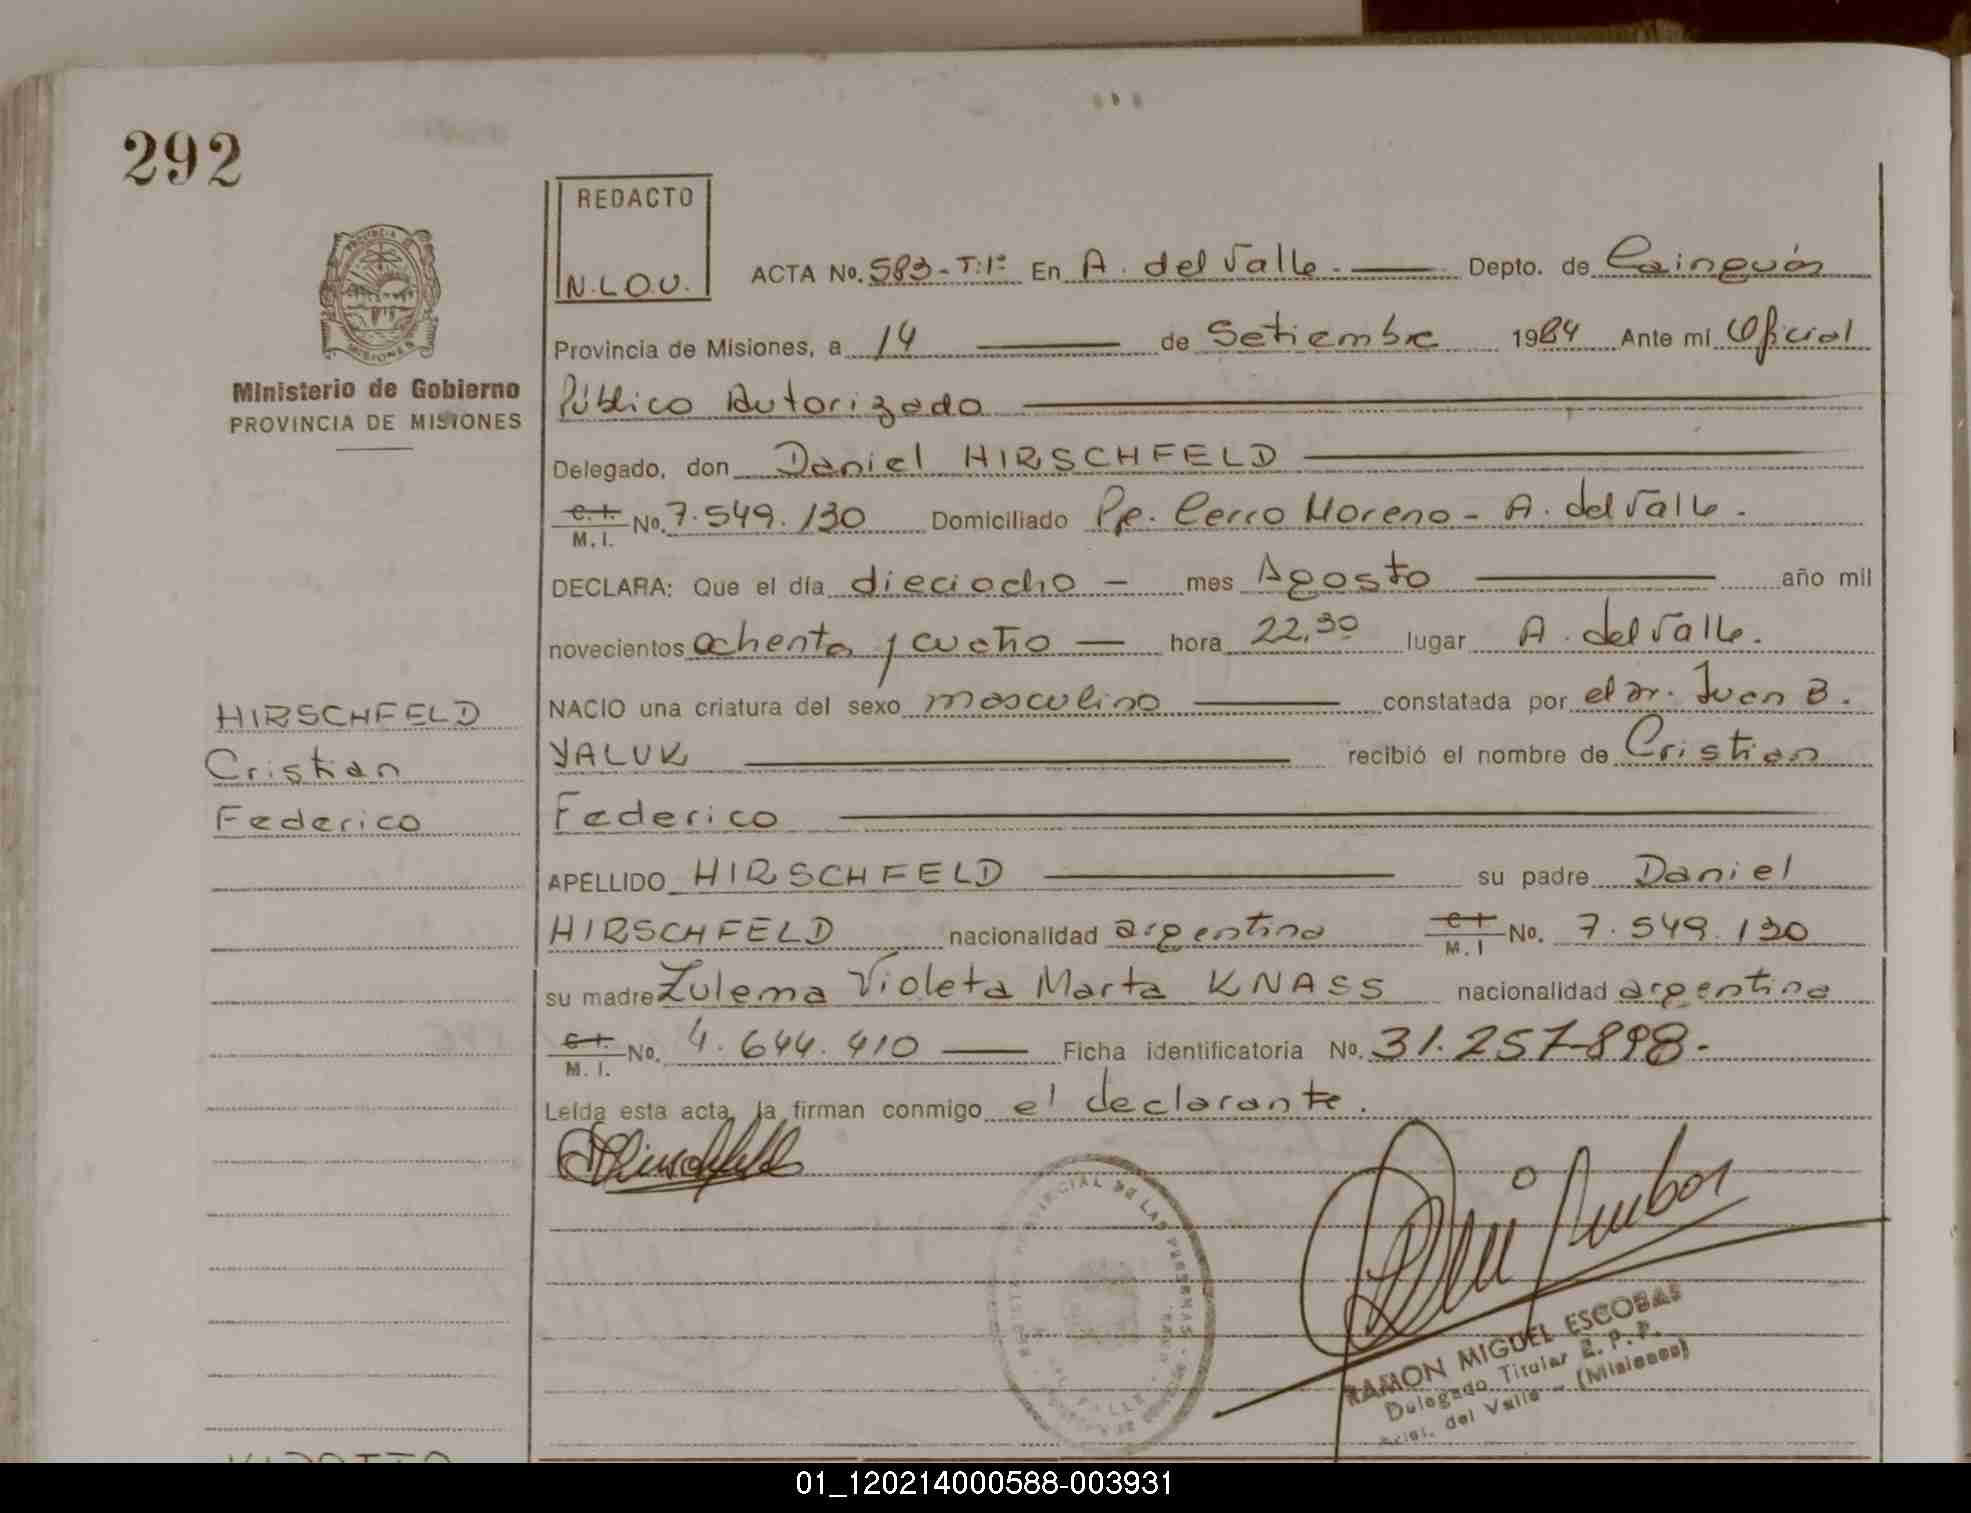 292
REDACTO
N.L.O.V.
PROVINCIA
MISIONES
Ministerio de Gobierno
PROVINCIA DE MISIONES
ACTA No. 583-T:1º En A. del Valle.- Depto. de Cainguás
Provincia de Misiones, a 14 de Setiembre 1984 Ante mí Oficial
Público Autorizado
Delegado, don Daniel HIRSCHFELD
C.I. M.I. No. 7.549.130 Domiciliado Pje. Cerro Moreno - A. del Valle.
DECLARA: Que el día dieciocho - mes Agosto año mil
novecientos ochenta y cuatro hora 22,30 lugar A. del Valle.
NACIO una criatura del sexo masculino constatada por el Dr. Juan B.
YALUK recibió el nombre de Cristian
Federico
APELLIDO HIRSCHFELD su padre Daniel
HIRSCHFELD nacionalidad argentina C.I. M.I No. 7.549.130
su madre Zulema Violeta Marta KNASS nacionalidad argentina
C.I. M.I. No. 4.644.410 Ficha identificatoria No. 31.257.898.-
Leída esta acta, la firman conmigo el declarante.
HIRSCHFELD
Cristian
Federico
PROVINCIAL DE LAS PERSONAS
RAMON MIGUEL ESCOBAR
Delegado Titular R. P. P.
Arist. del Valle - (Misiones)
01_120214000588-003931